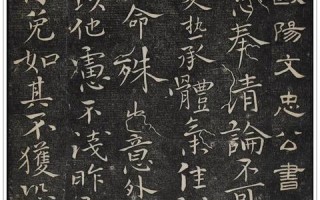 歐陽文忠公書
奉清論不可
承體氣佳
命殊出意外
以他慮不淺昨
免如其不獲